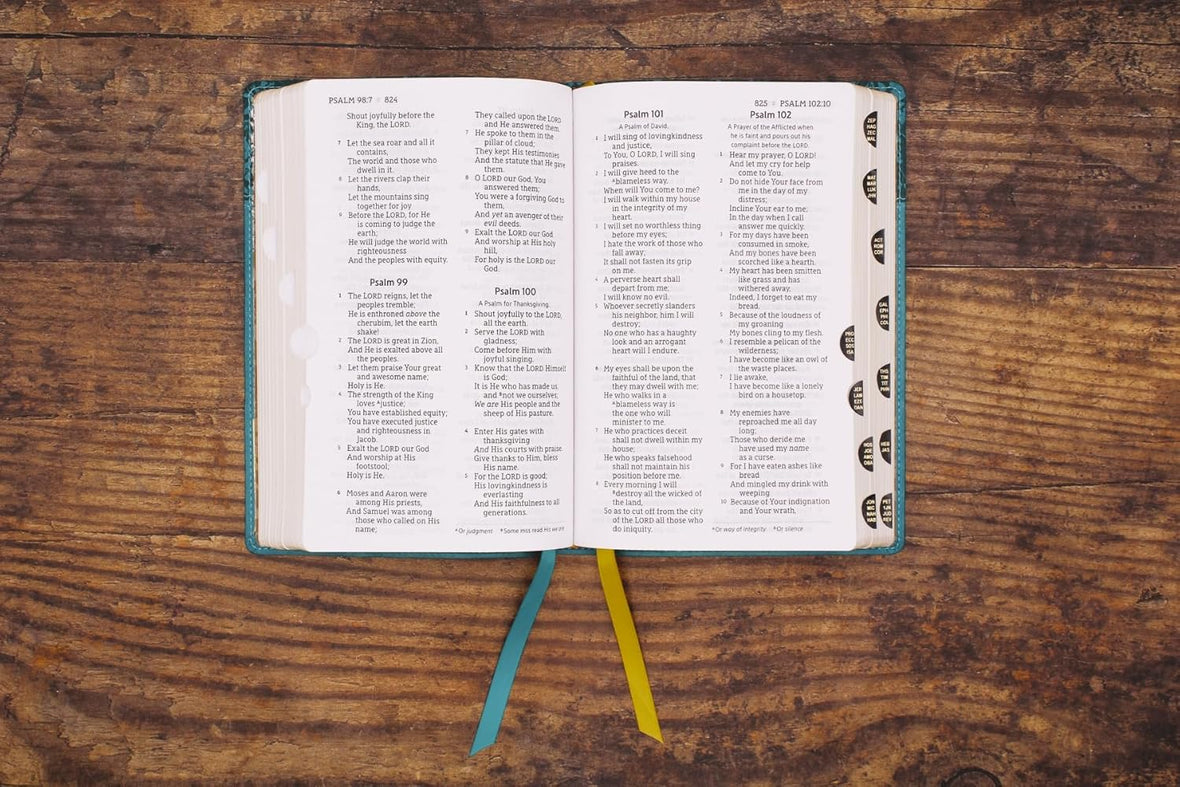 PSALM 98:7 824
Shout joyfully before the
King, the LORD.
7 Let the sea roar and all it
contains,
The world and those who
dwell in it.
8 Let the rivers clap their
hands,
Let the mountains sing
together for joy
9 Before the LORD, for He
is coming to judge the
earth;
He will judge the world with
righteousness
And the peoples with equity.
Psalm 99
1 The LORD reigns, let the
peoples tremble;
He is enthroned above the
cherubim, let the earth
shake!
2 The LORD is great in Zion,
And He is exalted above all
the peoples.
3 Let them praise Your great
and awesome name;
Holy is He.
4 The strength of the King
loves justice;
You have established equity;
You have executed justice
and righteousness in
Jacob.
5 Exalt the LORD our God
And worship at His
footstool;
Holy is He.
6 Moses and Aaron were
among His priests,
And Samuel was among
those who called on His
name;
They called upon the LORD
and He answered them.
7 He spoke to them in the
pillar of cloud;
They kept His testimonies
And the statute that He gave
them.
8 O LORD our God, You
answered them;
You were a forgiving God to
them,
And yet an avenger of their
evil deeds.
9 Exalt the LORD our God
And worship at His holy
hill,
For holy is the LORD our
God.
Psalm 100
A Psalm for Thanksgiving.
1 Shout joyfully to the LORD,
all the earth.
2 Serve the LORD with
gladness;
Come before Him with
joyful singing.
3 Know that the LORD Himself
is God;
It is He who has made us,
and not we ourselves;
We are His people and the
sheep of His pasture.
4 Enter His gates with
thanksgiving
And His courts with praise.
Give thanks to Him, bless
His name.
5 For the LORD is good;
His lovingkindness is
everlasting
And His faithfulness to all
generations.
Or judgment Some mss read His we are
825 PSALM 102:10
Psalm 101
A Psalm of David.
1 I will sing of lovingkindness
and justice,
To You, O LORD, I will sing
praises.
2 I will give heed to the
blameless way.
When will You come to me?
I will walk within my house
in the integrity of my
heart.
3 I will set no worthless thing
before my eyes;
I hate the work of those who
fall away;
It shall not fasten its grip
on me.
4 A perverse heart shall
depart from me;
I will know no evil.
5 Whoever secretly slanders
his neighbor, him I will
destroy;
No one who has a haughty
look and an arrogant
heart will I endure.
6 My eyes shall be upon the
faithful of the land, that
they may dwell with me;
He who walks in a
blameless way is
the one who will
minister to me.
7 He who practices deceit
shall not dwell within my
house;
He who speaks falsehood
shall not maintain his
position before me.
8 Every morning I will
destroy all the wicked of
the land,
So as to cut off from the city
of the LORD all those who
do iniquity.
Psalm 102
A Prayer of the Afflicted when
he is faint and pours out his
complaint before the LORD.
1 Hear my prayer, O LORD!
And let my cry for help
come to You.
2 Do not hide Your face from
me in the day of my
distress;
Incline Your ear to me;
In the day when I call
answer me quickly.
3 For my days have been
consumed in smoke,
And my bones have been
scorched like a hearth.
4 My heart has been smitten
like grass and has
withered away,
Indeed, I forget to eat my
bread.
5 Because of the loudness of
my groaning
My bones cling to my flesh.
6 I resemble a pelican of the
wilderness;
I have become like an owl of
the waste places.
7 I lie awake,
I have become like a lonely
bird on a housetop.
8 My enemies have
reproached me all day
long;
Those who deride me
have used my name
as a curse.
9 For I have eaten ashes like
bread
And mingled my drink with
weeping
10 Because of Your indignation
and Your wrath,
Or way of integrity Or silence
ZEP
HAG
ZEC
MAL
MAT
MAR
LUK
JHN
ACT
ROM
COR
GAL
EPH
PHI
COL
PRO
ECC
SOS
ISA
THS
TIM
TIT
PHN
JER
LAM
EZE
DAN
HOS
JOE
AMO
OBA
HEB
JAS
JON
MIC
NAH
HAB
PET
1JN
JUD
REV